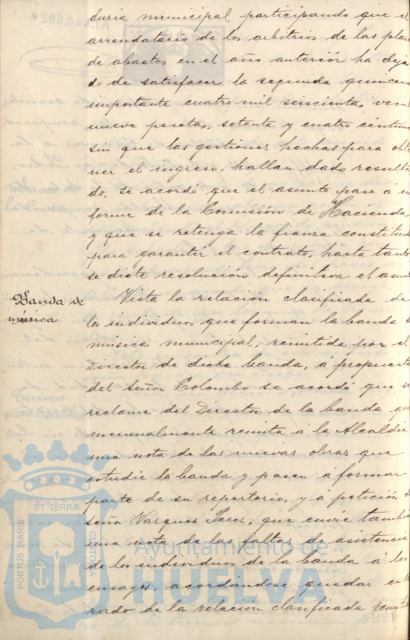 duria municipal participando que el
arrendatario de los arbitrios de las plazas
de abastos en el año anterior ha deja
do de satisfacer la segunda quincena
importante cuatro mil seiscientas vein
nueve pesetas, setenta y cuatro céntimos
sin que las gestiones hechas para obte
ner el ingreso, hallan dado resulta
do. Se acordó que el asunto pase a in
forme de la Comisión de Hacienda
y que se retenga la fianza constituida
para garantir el contrato, hasta tanto
se dicte resolución definitiva el asunto
Banda de
música
Vista la relación clasificada de
los individuos que forman la banda de
música municipal, remitida por el
Director de dicha banda, á propuesta
del Señor Colombo se acordó que se
reclame del Director de la banda que
mensualmente remita a la Alcaldía
una nota de las nuevas obras que
estudie la banda y pasen á formar
parte de su repertorio, y á petición del
señor Vazquez Perez, que envie también
una nota de las faltas de asistencia
de los individuos de la banda á los
ensayos, acordándose quedar ente
rado de la relación clasificada remiti
ET TERRÆ
PORTUS MARIS
CUSTODIA
Ayuntamiento de
HUELVA